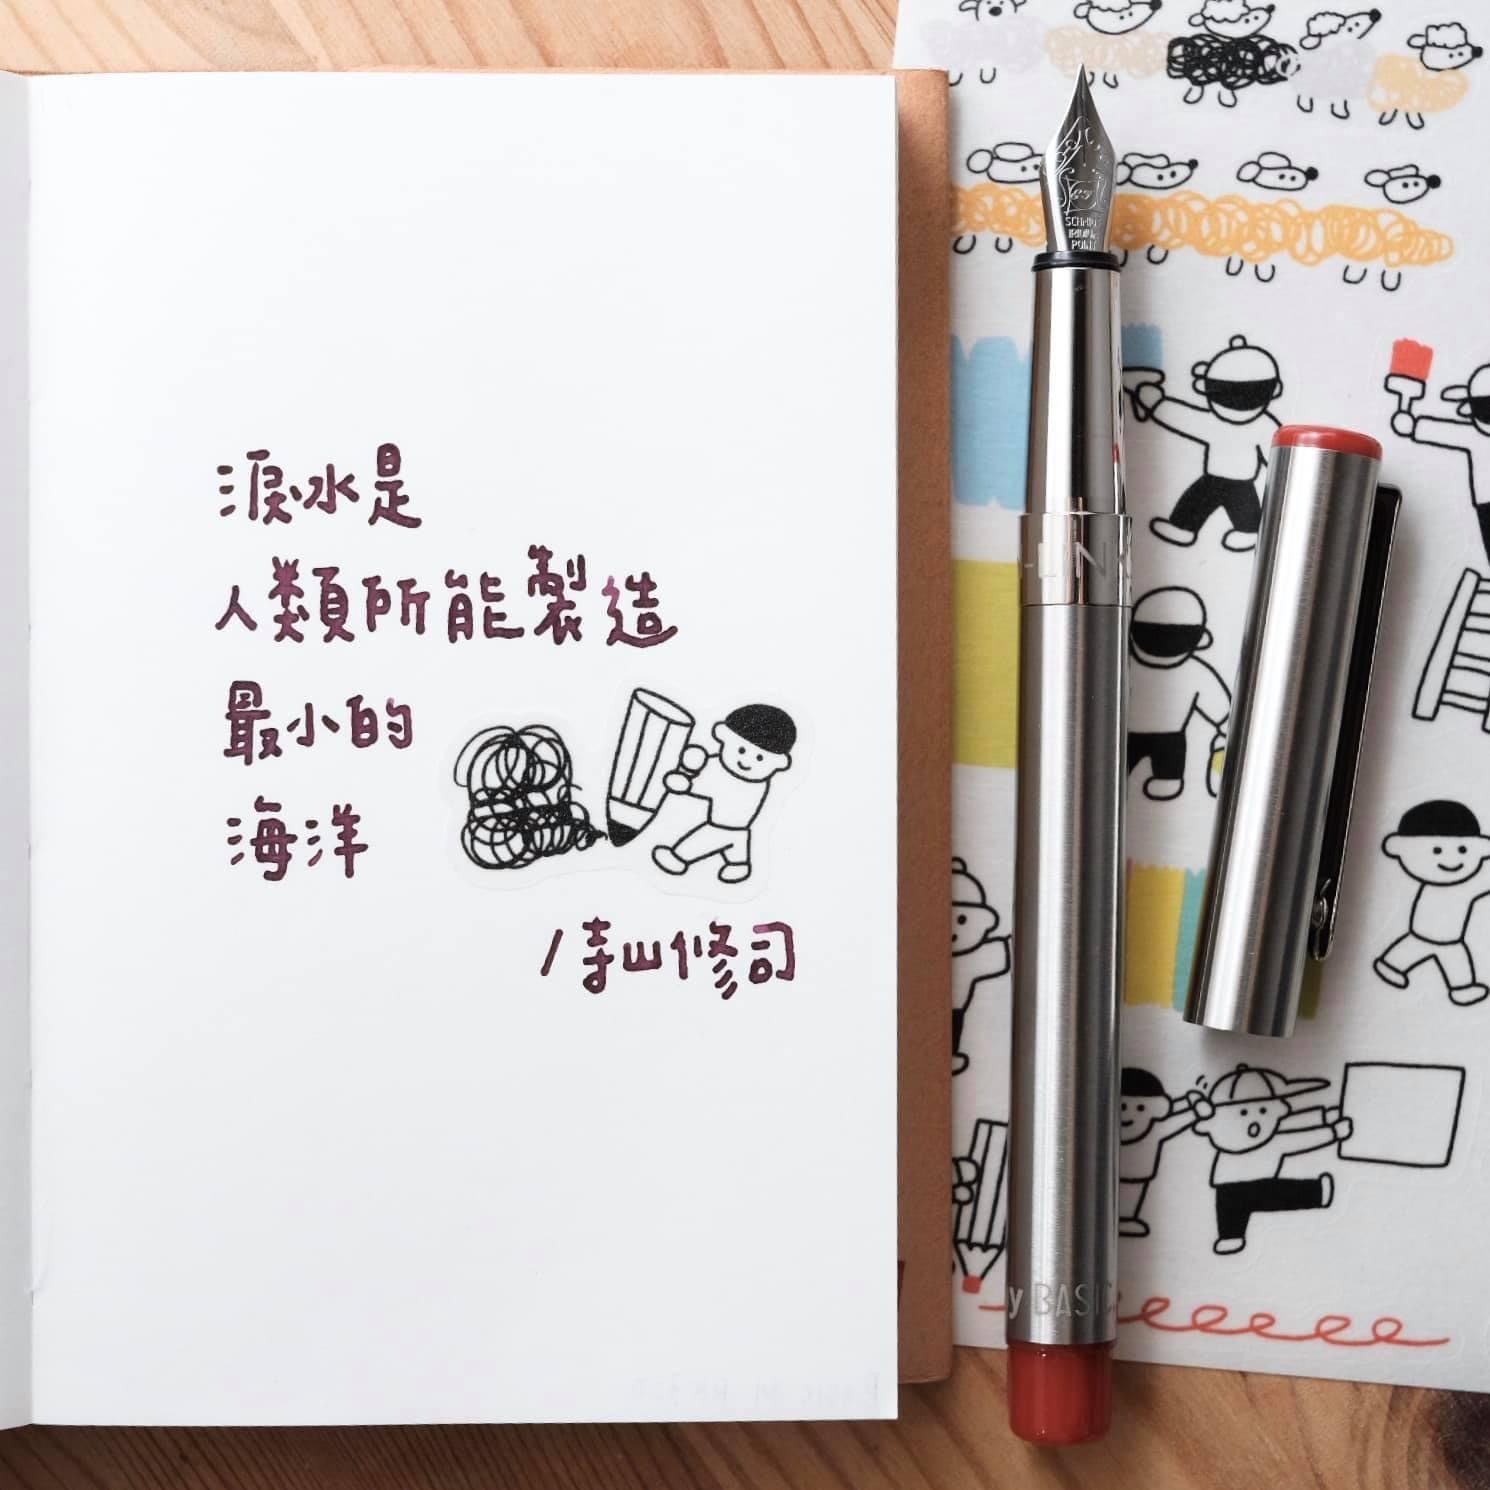 淚水是
人類所能製造
最小的
海洋
/寺山修司
SCHMID
IRIDIUM
POINT
-LINK
y BASIC